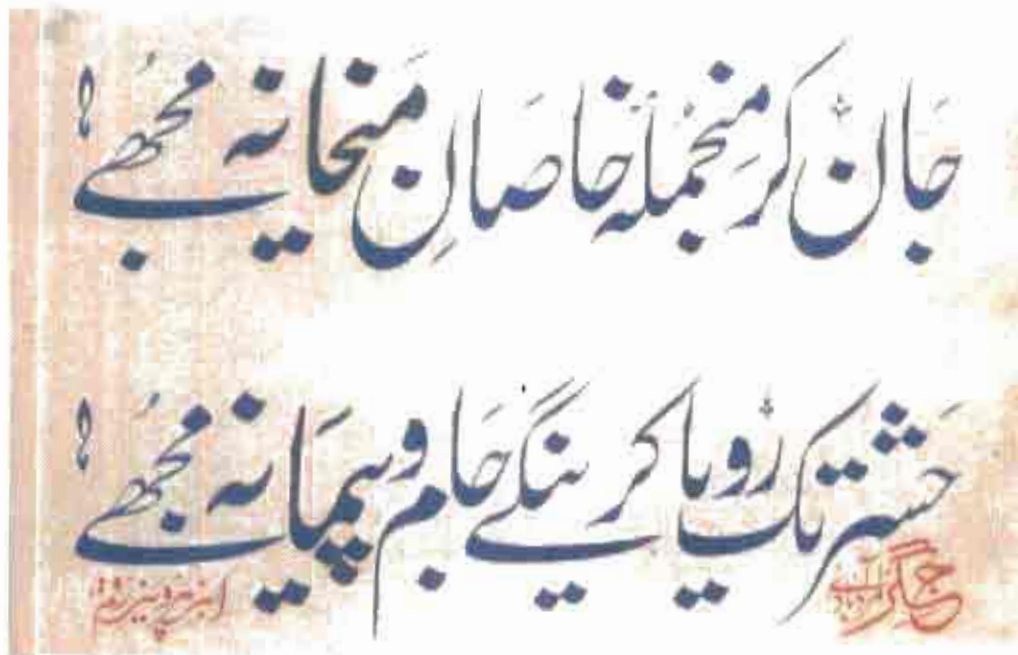 جان کر منجملہ خاصانِ میخانہ مجھے!
حشر تک رویا کرینگے جام و پیمانہ مجھے!
جگر مرادآبادی